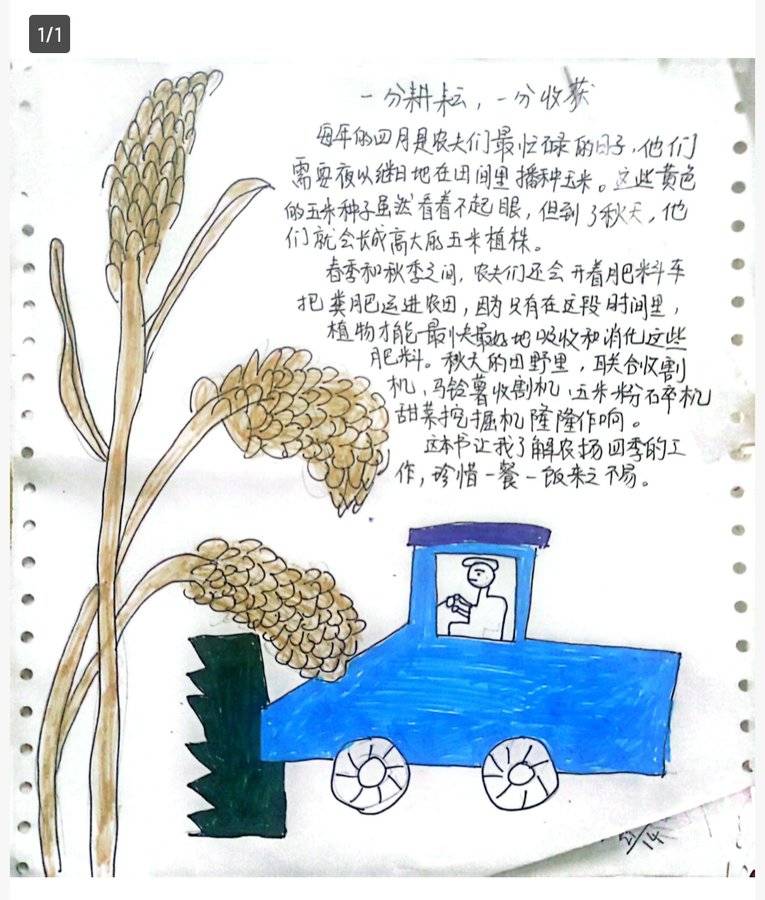 1/1
一分耕耘，一分收获
每年的四月是农夫们最忙碌的日子，他们
需要夜以继日地在田间里播种玉米。这些黄色
的玉米种子虽然看着不起眼，但到了秋天，他
们就会长成高大的玉米植株。
春季和秋季之间，农夫们还会开着肥料车
把粪肥运进农田，因为只有在这段时间里，
植物才能最快最好地吸收和消化这些
肥料。秋天的田野里，联合收割
机，马铃薯收割机，玉米粉碎机
甜菜挖掘机隆隆作响。
这本书让我了解农场四季的工
作，珍惜一餐一饭来之不易。